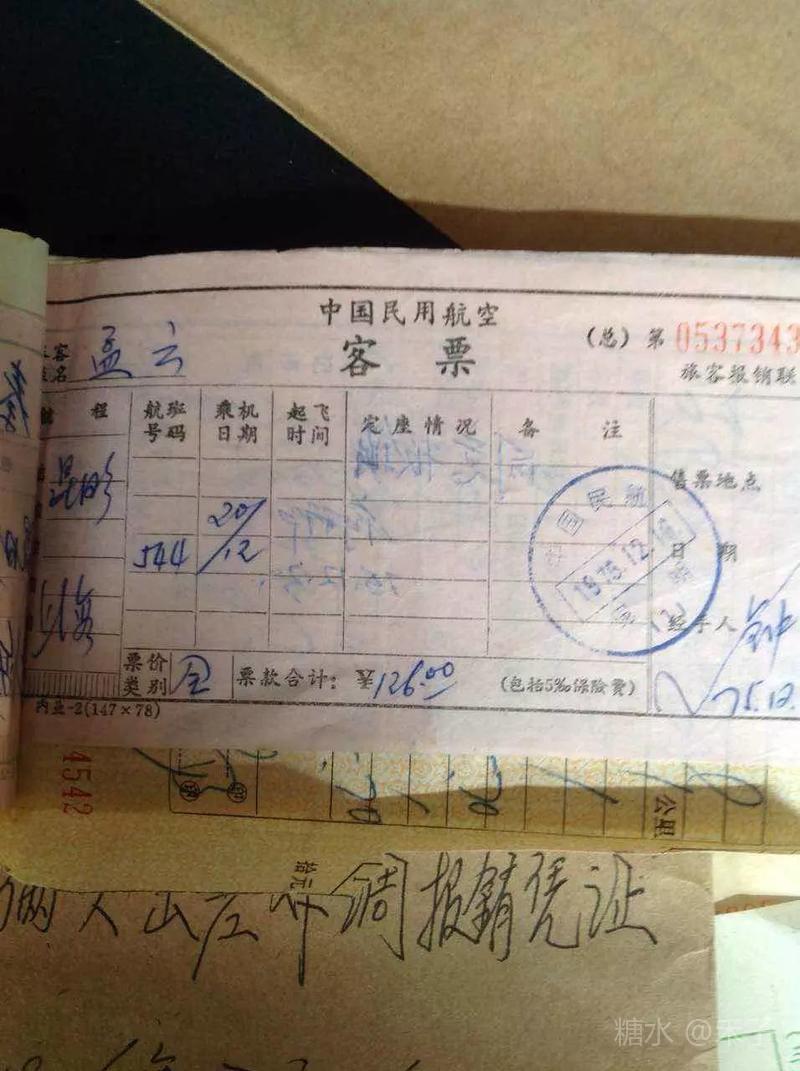 中国民用航空
客票
(总) 第 0537343
旅客报销联
孟云
程 航班号码 乘机日期 起飞时间 定座情况 备注
昆明
544 20/12
上海
售票地点
中国民航
1975.12.16
日期
经手人
75.12.
票价类别 全 票款合计: ¥126.00 (包括5‰保险费)
内亚-2(147×78)
4542
公里
拾元
人出差
报销凭证
糖水